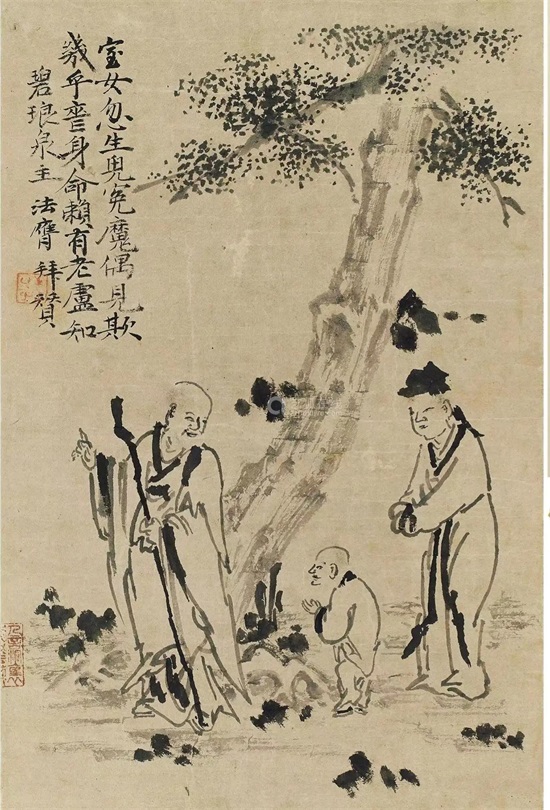 室女忽生児冤魔偶見欺
幾乎齏身命賴有老盧知
碧琅泉主法膺拜贊